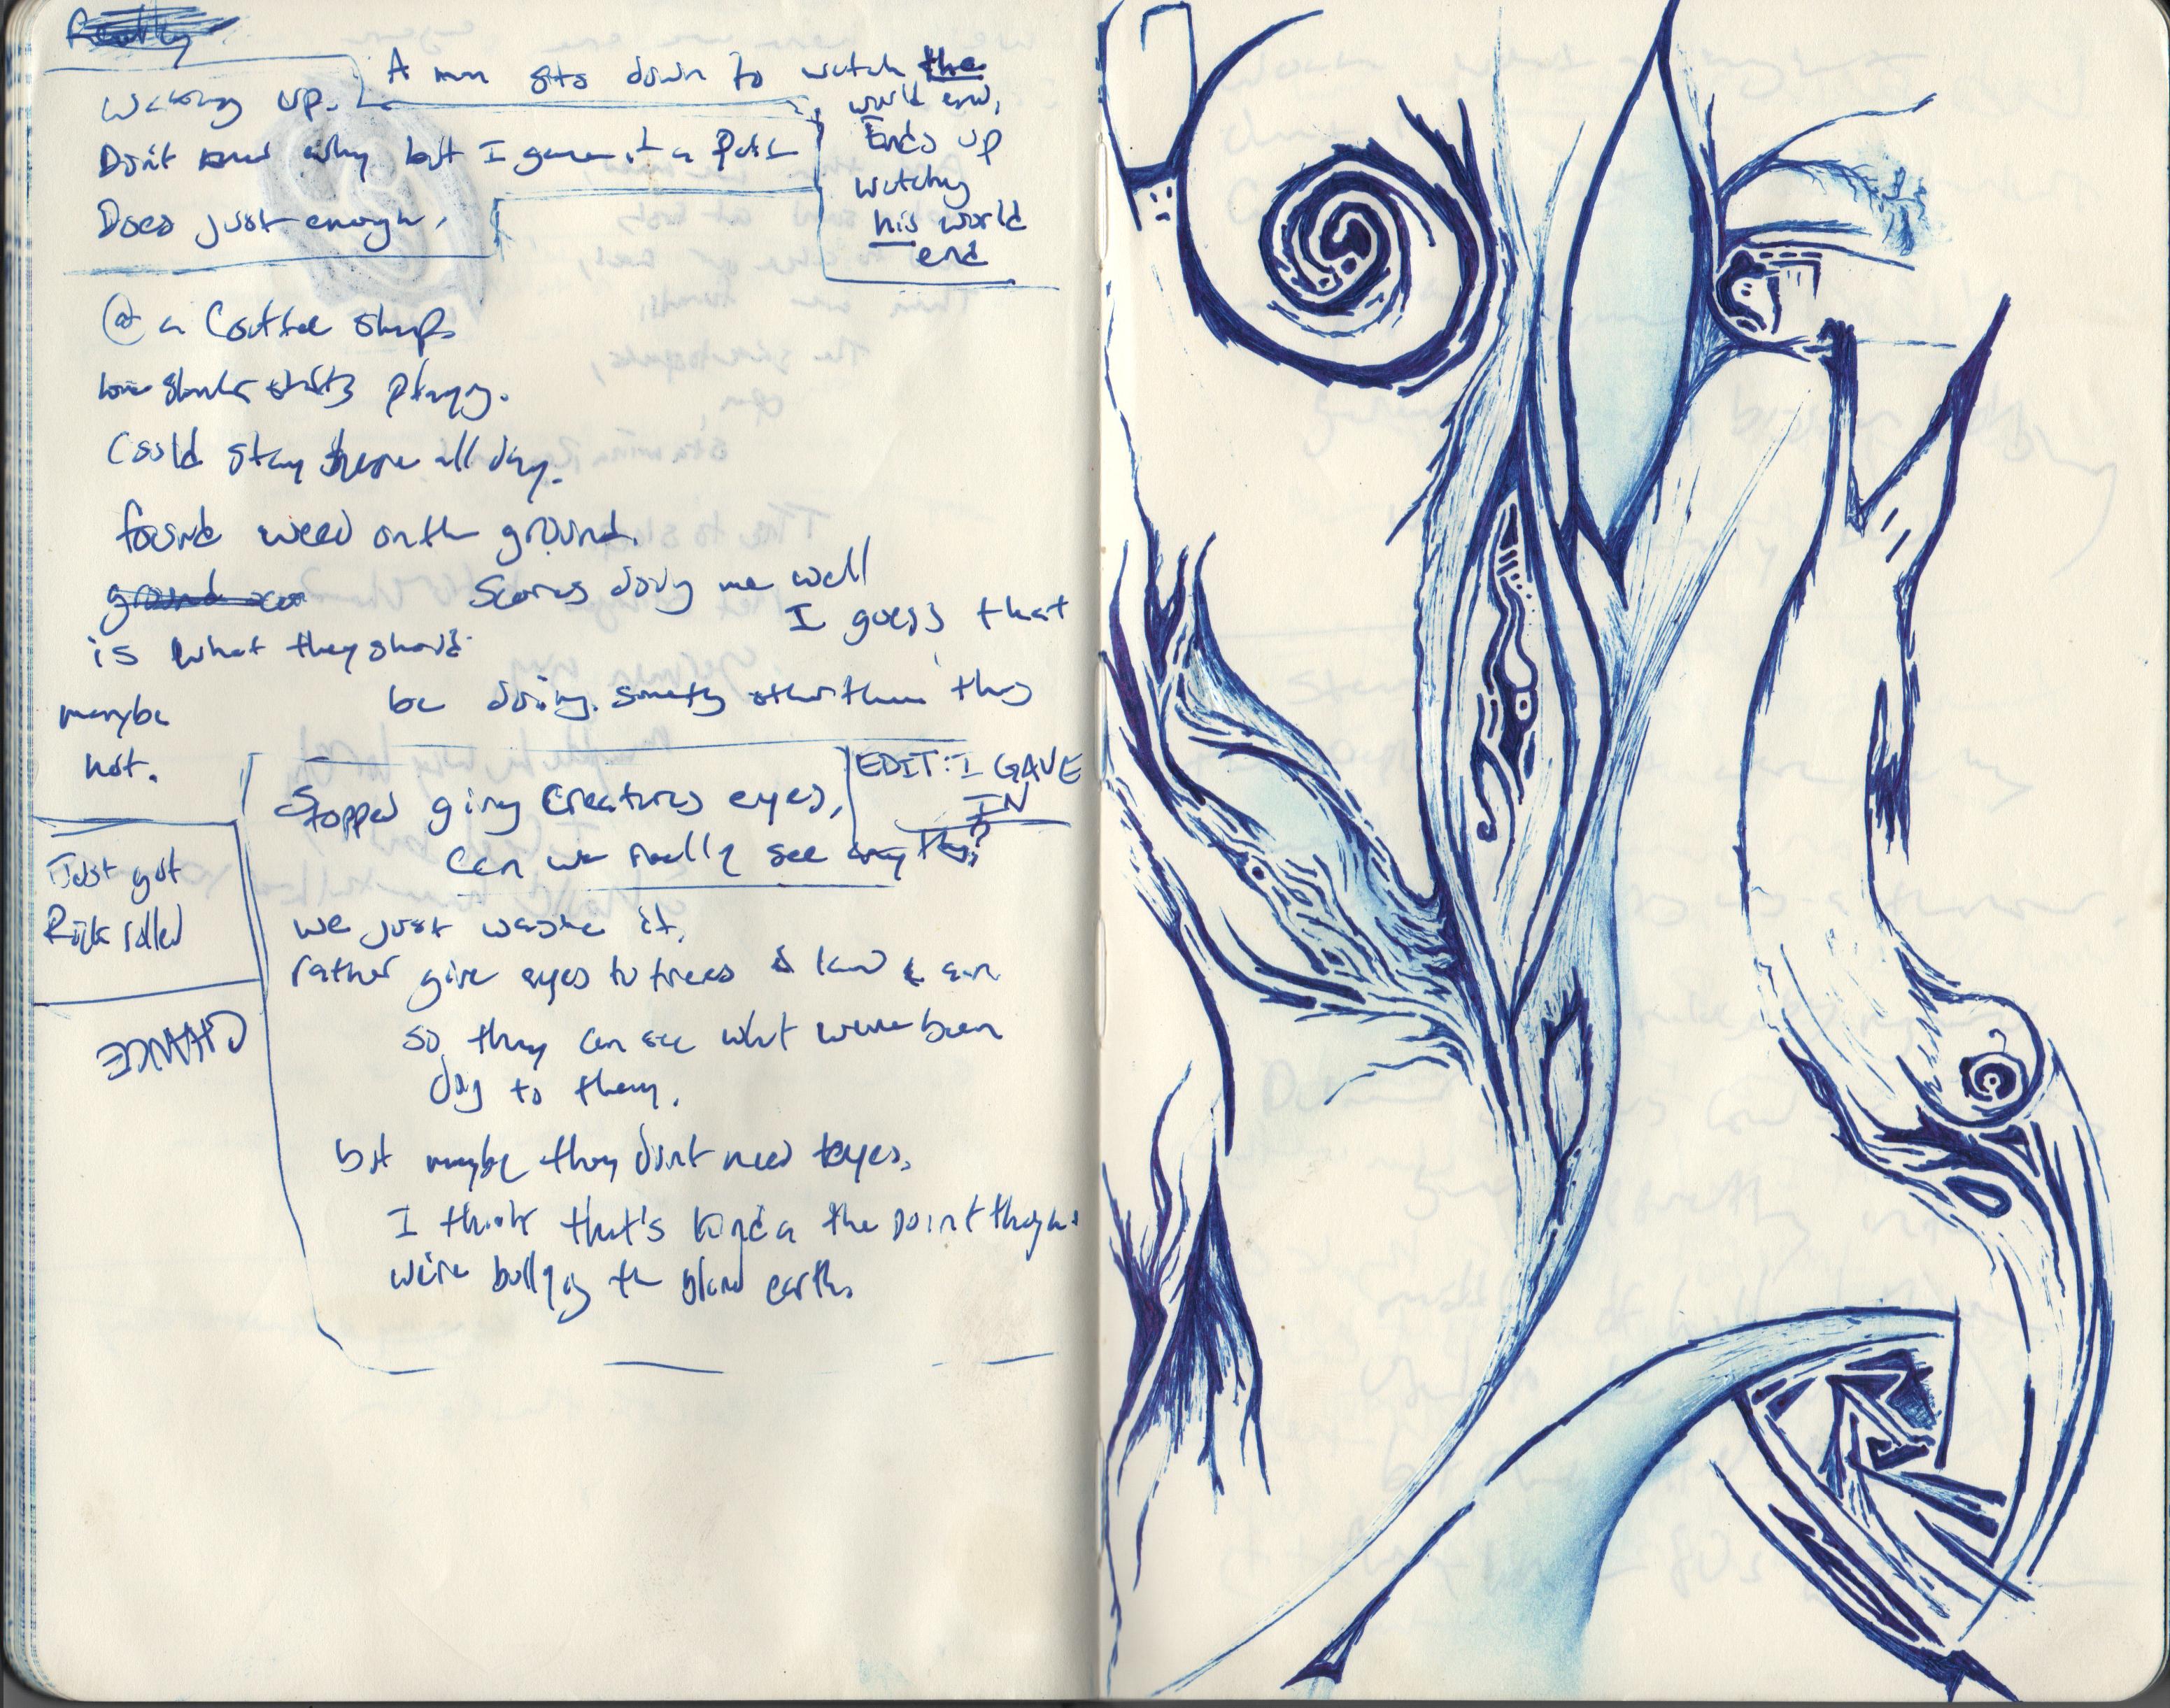 Waking up.
Don't know why but I gave it a Path
Does just enough.
A man sits down to watch the
world end,
Ends up
watching
his world
end
@ a Coffee shop.
starts playing.
Could stay here all day.
found weed on the ground.
ground
Scores doing me well
I guess that
is what they should
be doing. something other than this
maybe
not.
Stopped giving Creatures eyes,
Can we really see anything?
EDIT: I GAVE
IN
Just got
Rick rolled
CHANGE
we just waste it.
rather give eyes to trees & land & air
so they can see what we've been
doing to them.
but maybe they don't need eyes.
I think that's kinda the point though.
we're bullying the blind earth.